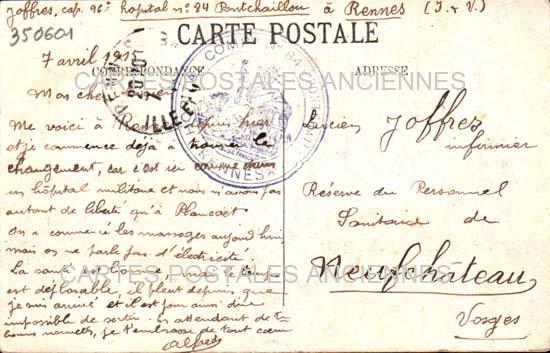 Joffres, cap. 96e hopital no 84 Pontchaillou à Rennes (I. & V.)
350601
CARTE POSTALE
7 avril 191
CORRESPONDANCE
ADRESSE
CARTES POSTALES ANCIENNES
Mon cher
Me voici à Rennes depuis hier
et je commence déjà à trouver le
changement, car c'est ici
un hôpital militaire et nous n'avons pas
autant de liberté qu'à Plancoët
On a commencé les massages aujourd'hui,
mais on ne parle pas d'électricité
La santé est bonne, mais le temps
est déplorable, il pleut depuis que
je suis arrivé et il est pour ainsi dire
impossible de sortir. En attendant de tes
bonnes nouvelles, je t'embrasse de tout coeur
Alfred
Lucien Joffres
infirmier
Réserve du Personnel
Sanitaire de
Neufchâteau
Vosges
CARTES POSTALES ANCIENNES
RENNES
ILLE-ET-V